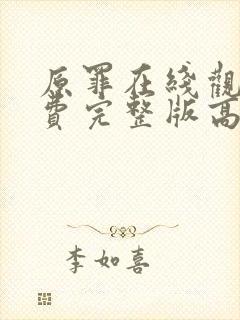 原罪在綫觀
費完整版高
李如喜